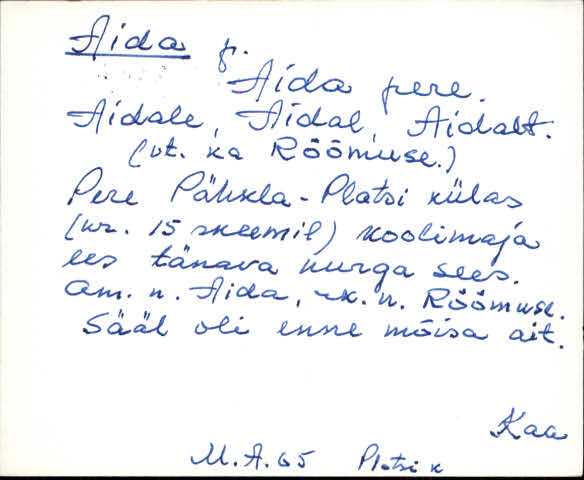 Aida p.
Aida pere.
Aidale, Aidal, Aidalt.
(vt. ka Rõõmuse.)
Pere Pähkla-Platsi külas
(nr. 15 skeemil) koolimaja
ees tänava nurga sees.
Am. n. Aida, rk. n. Rõõmuse.
Sääl oli enne mõisa ait.
Kaa
M.A. 65 Platsi k